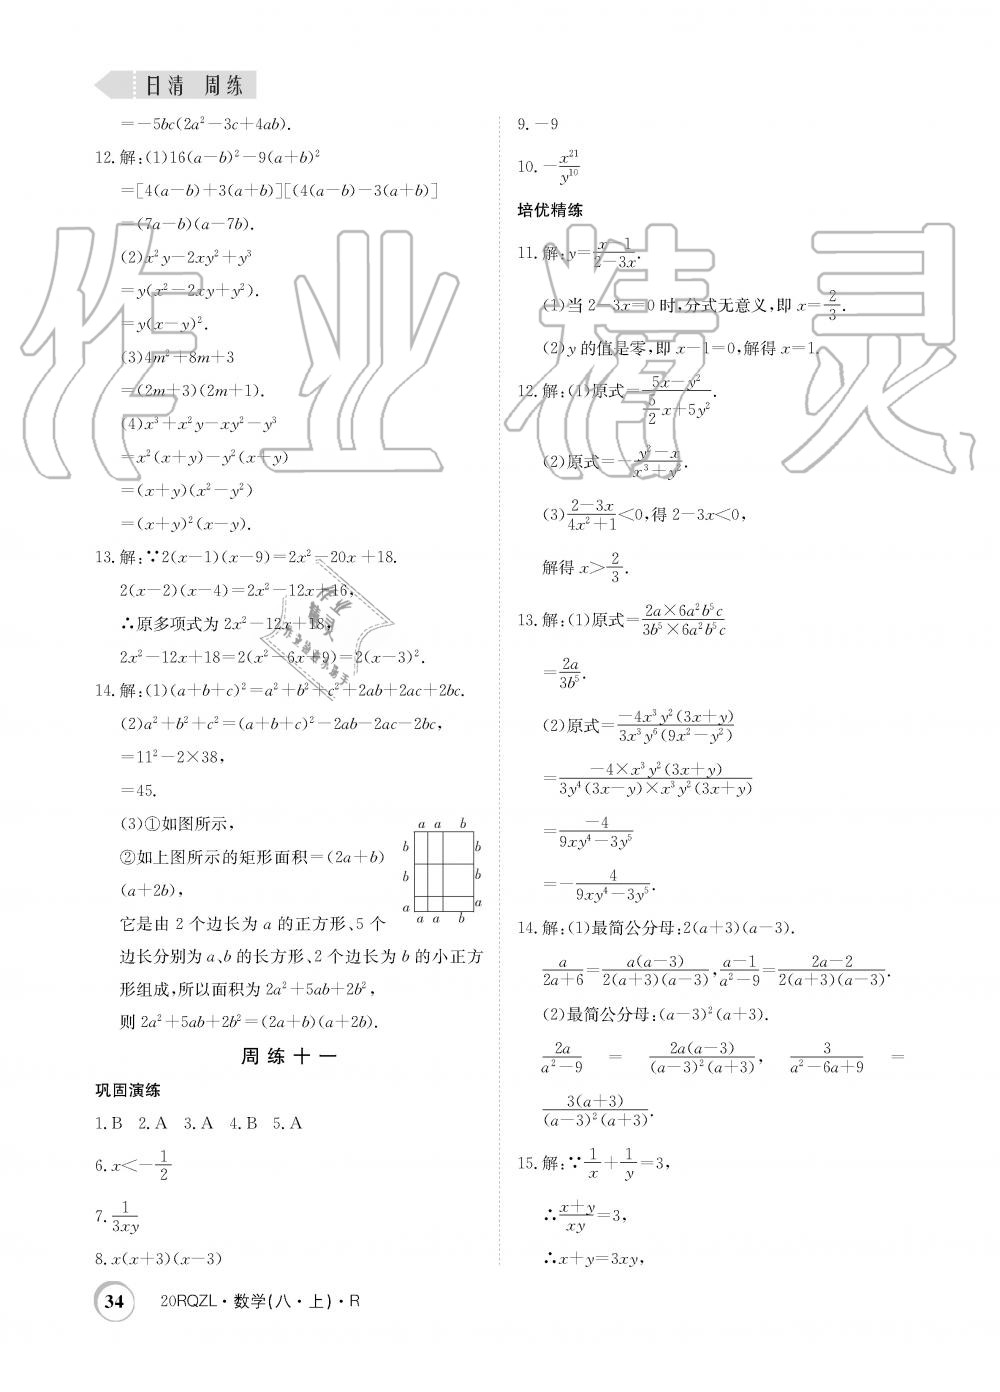 日清 周练
=-5bc(2a²-3c+4ab).
12.解:(1)16(a-b)²-9(a+b)²
=[4(a-b)+3(a+b)][(4(a-b)-3(a+b)]
=(7a-b)(a-7b).
(2)x²y-2xy²+y³
=y(x²-2xy+y²).
=y(x-y)².
(3)4m²+8m+3
=(2m+3)(2m+1).
(4)x³+x²y-xy²-y³
=x²(x+y)-y²(x+y)
=(x+y)(x²-y²)
=(x+y)²(x-y).
13.解:∵2(x-1)(x-9)=2x²-20x+18.
2(x-2)(x-4)=2x²-12x+16,
∴原多项式为 2x²-12x+18,
2x²-12x+18=2(x²-6x+9)=2(x-3)².
14.解:(1)(a+b+c)²=a²+b²+c²+2ab+2ac+2bc.
(2)a²+b²+c²=(a+b+c)²-2ab-2ac-2bc,
=11²-2×38,
=45.
(3)①如图所示,
②如上图所示的矩形面积=(2a+b)
(a+2b),
它是由 2 个边长为 a 的正方形、5 个
边长分别为 a、b 的长方形、2 个边长为 b 的小正方
形组成,所以面积为 2a²+5ab+2b²,
则 2a²+5ab+2b²=(2a+b)(a+2b).
a a b
b b
b b
a a
a a b
周练十一
巩固演练
1.B 2.A 3.A 4.B 5.A
6.x<-1/2
7.1/3xy
8.x(x+3)(x-3)
34 20RQZL·数学(八·上)·R
9.-9
10.-x²¹/y¹⁰
培优精练
11.解:y=(x-1)/(2-3x).
(1)当 2-3x=0 时,分式无意义,即 x=2/3.
(2)y 的值是零,即 x-1=0,解得 x=1.
12.解:(1)原式=(5x-y²)/(5/2 x+5y²).
(2)原式=-(y²-x)/(x³+y²).
(3)(2-3x)/(4x²+1)<0,得 2-3x<0,
解得 x>2/3.
13.解:(1)原式=(2a×6a²b⁵c)/(3b⁵×6a²b⁵c)
=2a/3b⁵.
(2)原式=-4x³y²(3x+y)/3x³y⁶(9x²-y²)
=-4×x³y²(3x+y)/3y⁴(3x-y)×x³y²(3x+y)
=-4/(9xy⁴-3y⁵)
=-4/(9xy⁴-3y⁵).
14.解:(1)最简公分母:2(a+3)(a-3).
a/(2a+6)=a(a-3)/2(a+3)(a-3),(a-1)/(a²-9)=(2a-2)/2(a+3)(a-3).
(2)最简公分母:(a-3)²(a+3).
2a/(a²-9) = 2a(a-3)/(a-3)²(a+3), 3/(a²-6a+9) =
3(a+3)/(a-3)²(a+3).
15.解:∵1/x+1/y=3,
∴(x+y)/xy=3,
∴x+y=3xy,
作业精灵